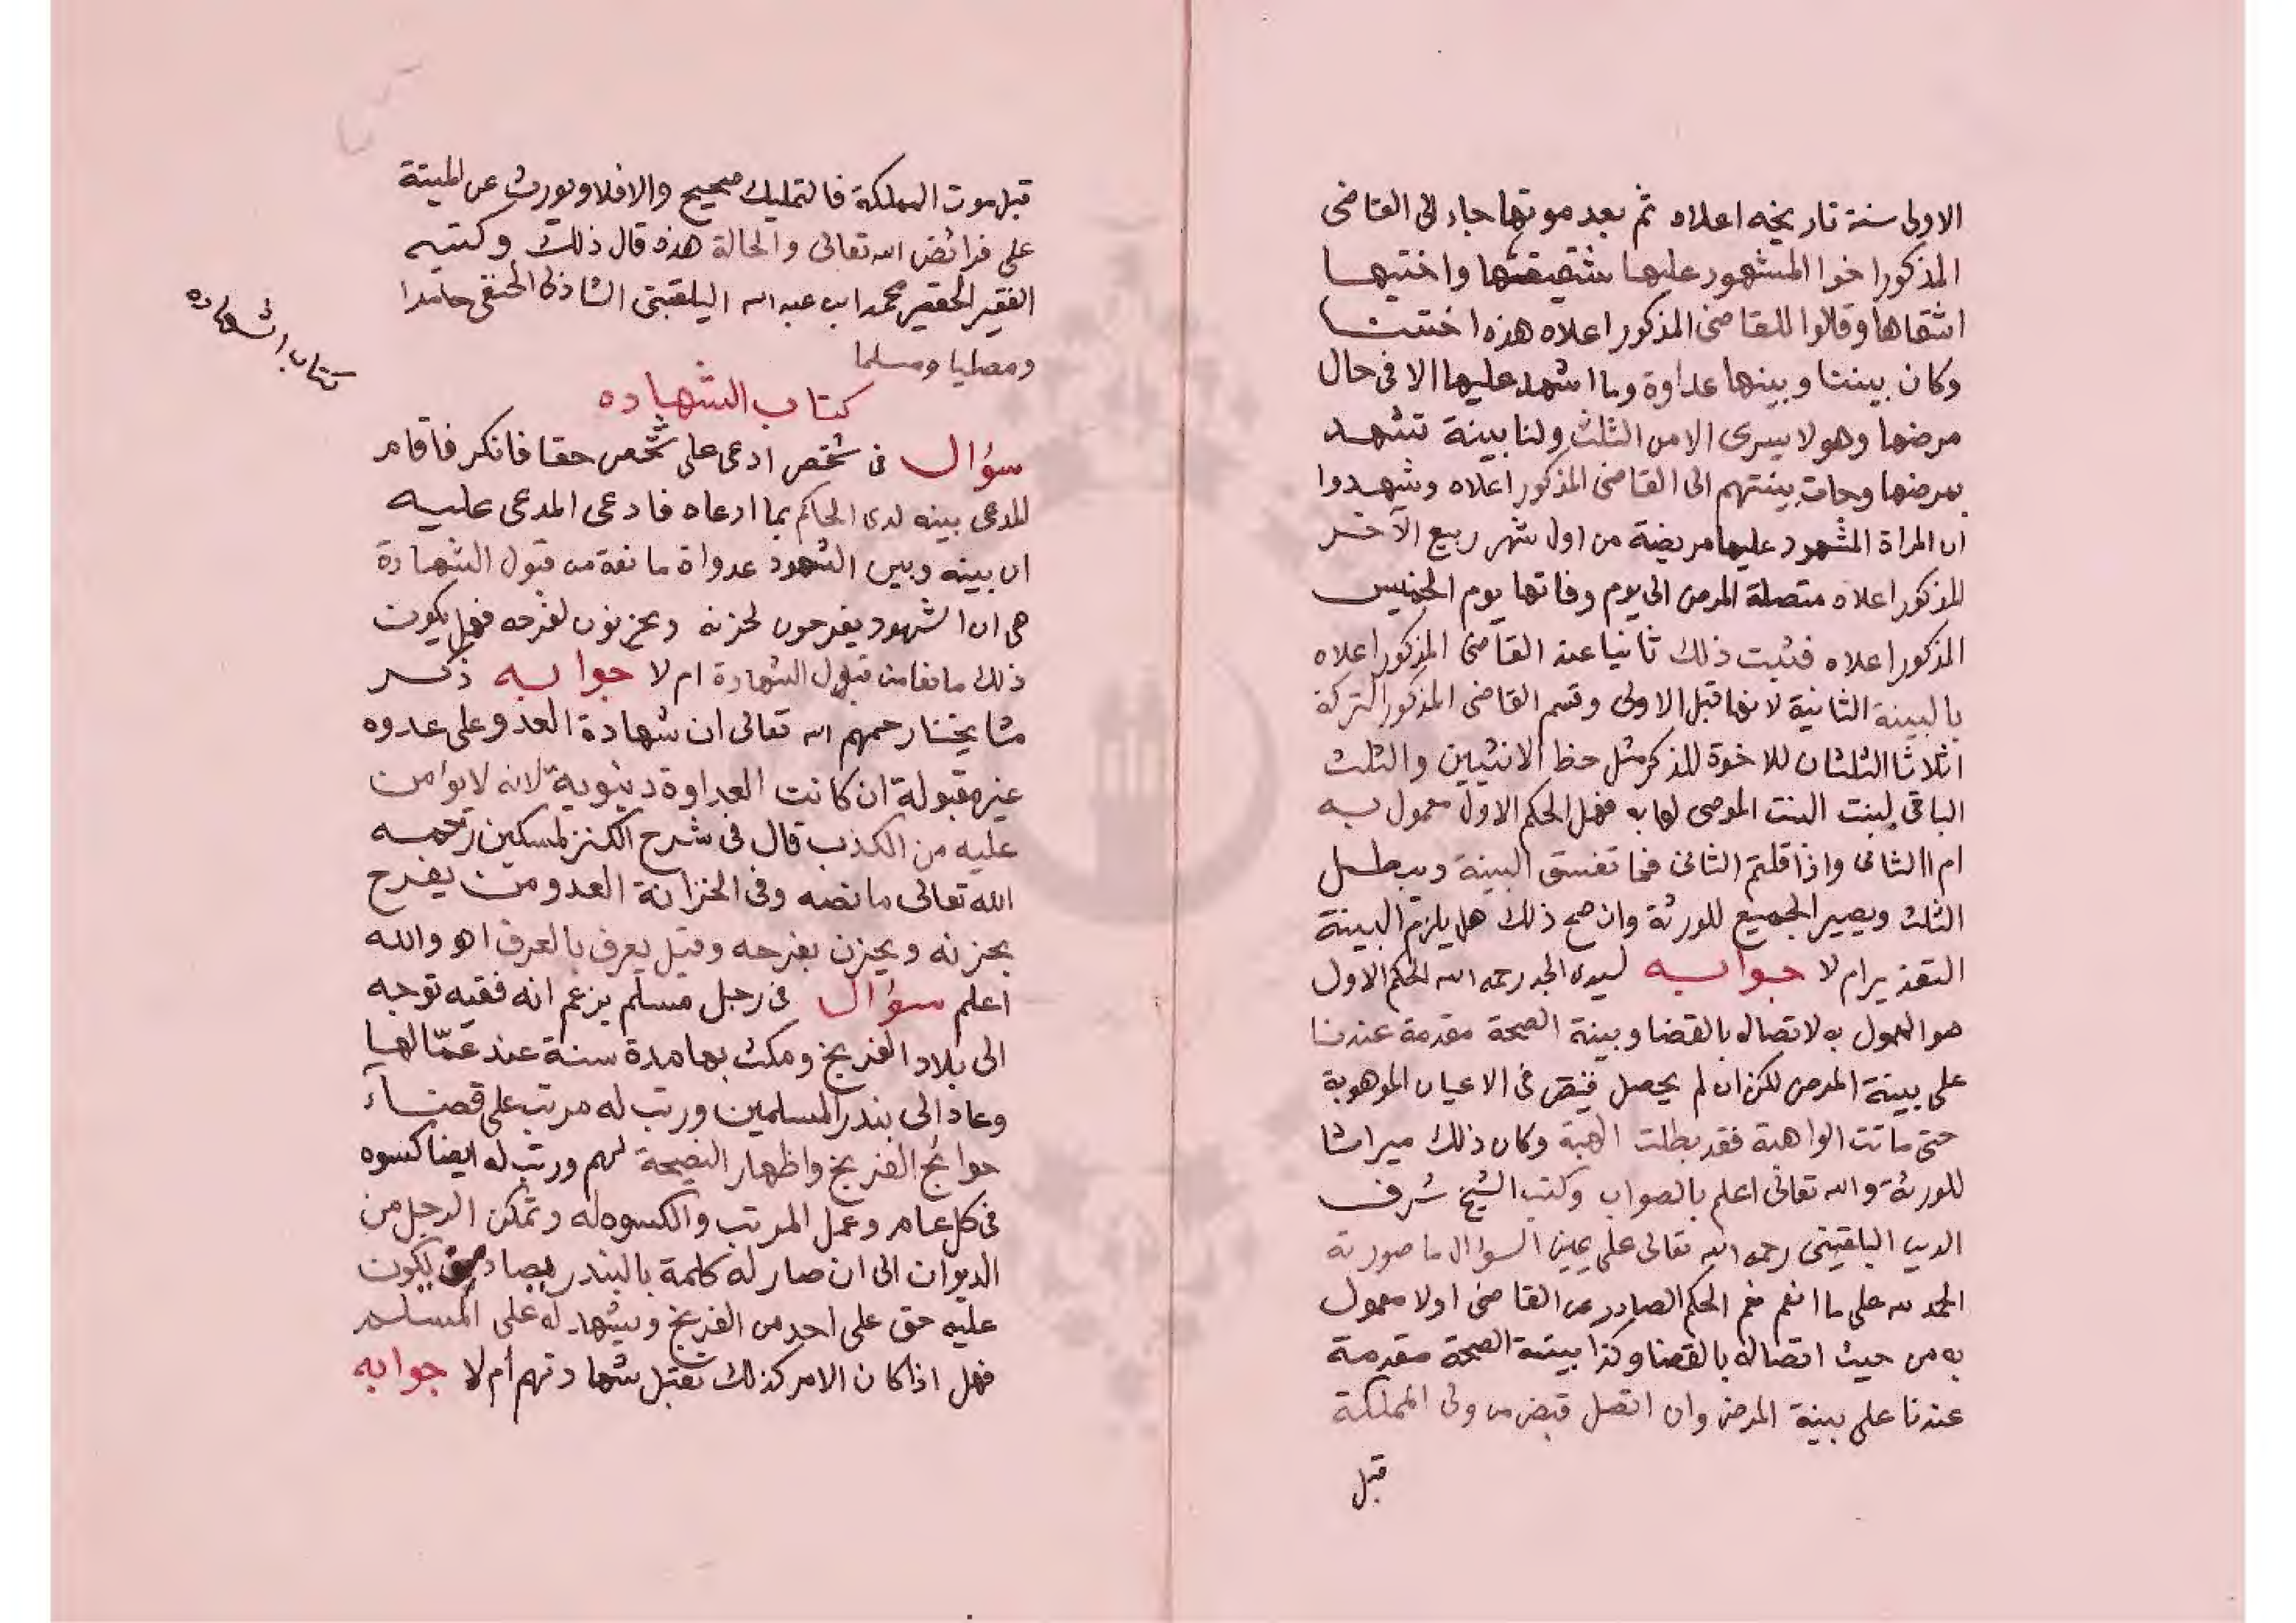 الاولى سنة تاريخه اعلاه ثم بعد موتها جاء الى القاضى
المذكور اخوا المشهود عليها شقيقها واختيها
اشقاها وقالوا للقاضى المذكور اعلاه هذه اختنا
وكان بيننا وبينها عداوة وما اشهد عليها الا فى حال
مرضها وهو لا يسرى الا من الثلث ولنا بينة تشهد
بمرضها وجات بينتهم الى القاضى المذكور اعلاه وشهدوا
ان المراة المشهود عليها مريضة من اول شهر ربيع الآخر
المذكور اعلاه متصلة المرض الى يوم وفاتها يوم الخميس
المذكور اعلاه فثبت ذلك ثانيا عند القاضى المذكور اعلاه
بالبينة الثانية لانها قبل الاولى وقسم القاضى المذكور التركة
اثلاثا الثلثان للاخوة للذكر مثل حظ الانثيين والثلث
الباقى لبنت البنت الموصى لها به فهل الحكم الاول معمول به
ام الثانى واذا قلتم الثانى فما تفسق البينة ويبطل
الثلث ويصير الجميع للورثة وان صح ذلك هل يلزم البينة
التعزير ام لا جوابه لسيدى الجد رحمه الله الحكم الاول
هو المعمول به لاتصاله بالقضا وبينة الصحة مقدمة عندنا
على بينة المرض لكن ان لم يحصل قبض فى الاعيان الموهوبة
حتى ماتت الواهبة فقد بطلت الهبة وكان ذلك ميراثا
للورثة والله تعالى اعلم بالصواب وكتب الشيخ شرف
الدين البلقينى رحمه الله تعالى على يمين السؤال ما صورته
الحمد لله على ما انعم نعم الحكم الصادر من القاضى اولا معمول
به من حيث اتصاله بالقضا وكذا بينة الصحة مقدمة
عندنا على بينة المرض وان اتصل قبض من ولى المملكة
قبل
قبل موت المملكة فالتمليك صحيح والا فلا ويورث عن الميتة
على فرائض الله تعالى والحالة هذه قال ذلك وكتبه
الفقير الحقير محمد ابن عبد الله البلقينى الشاذلى الحنفى حامدا
ومصليا ومسلما
كتاب الشهاده
كتاب الشهاده
سؤال فى شخص ادعى على شخص حقا فانكر فاقام
المدعى بينه لدى الحاكم بما ادعاه فادعى المدعى عليه
ان بينه وبين الشهود عدواة مانعة من قبول الشهادة
هى ان الشهود يفرحون لحزنه ويحزنون لفرحه فهل يكون
ذلك مانعا من قبول الشهادة ام لا جوابه ذكر
مشايخنا رحمهم الله تعالى ان شهادة العدو على عدوه
غير مقبولة ان كانت العداوة دينوية لانه لا يوامن
عليه من الكذب قال فى شرح الكنز لمسكين رحمه
الله تعالى ما نصه وفى الخزانة العدو من يفرح
بحزنه ويحزن بفرحه وقيل يعرف بالعرف اهـ والله
اعلم سؤال فى رجل مسلم يزعم انه فقيه توجه
الى بلاد الفرنج ومكث بها مدة سنة عند عمالها
وعاد الى بندر المسلمين ورتب له مرتب على قضاء
حوائج الفرنج واظهار النصيحة لهم ورتب له ايضا كسوه
فى كل عام وعمل المرتب والكسوه له وتمكن الرجل من
الديوان الى ان صار له كلمة بالبندر يكون
عليه حق على احد من الفرنج ويشهد له على المسلم
فهل اذا كان الامر كذلك تقبل شهادتهم أم لا جوابه